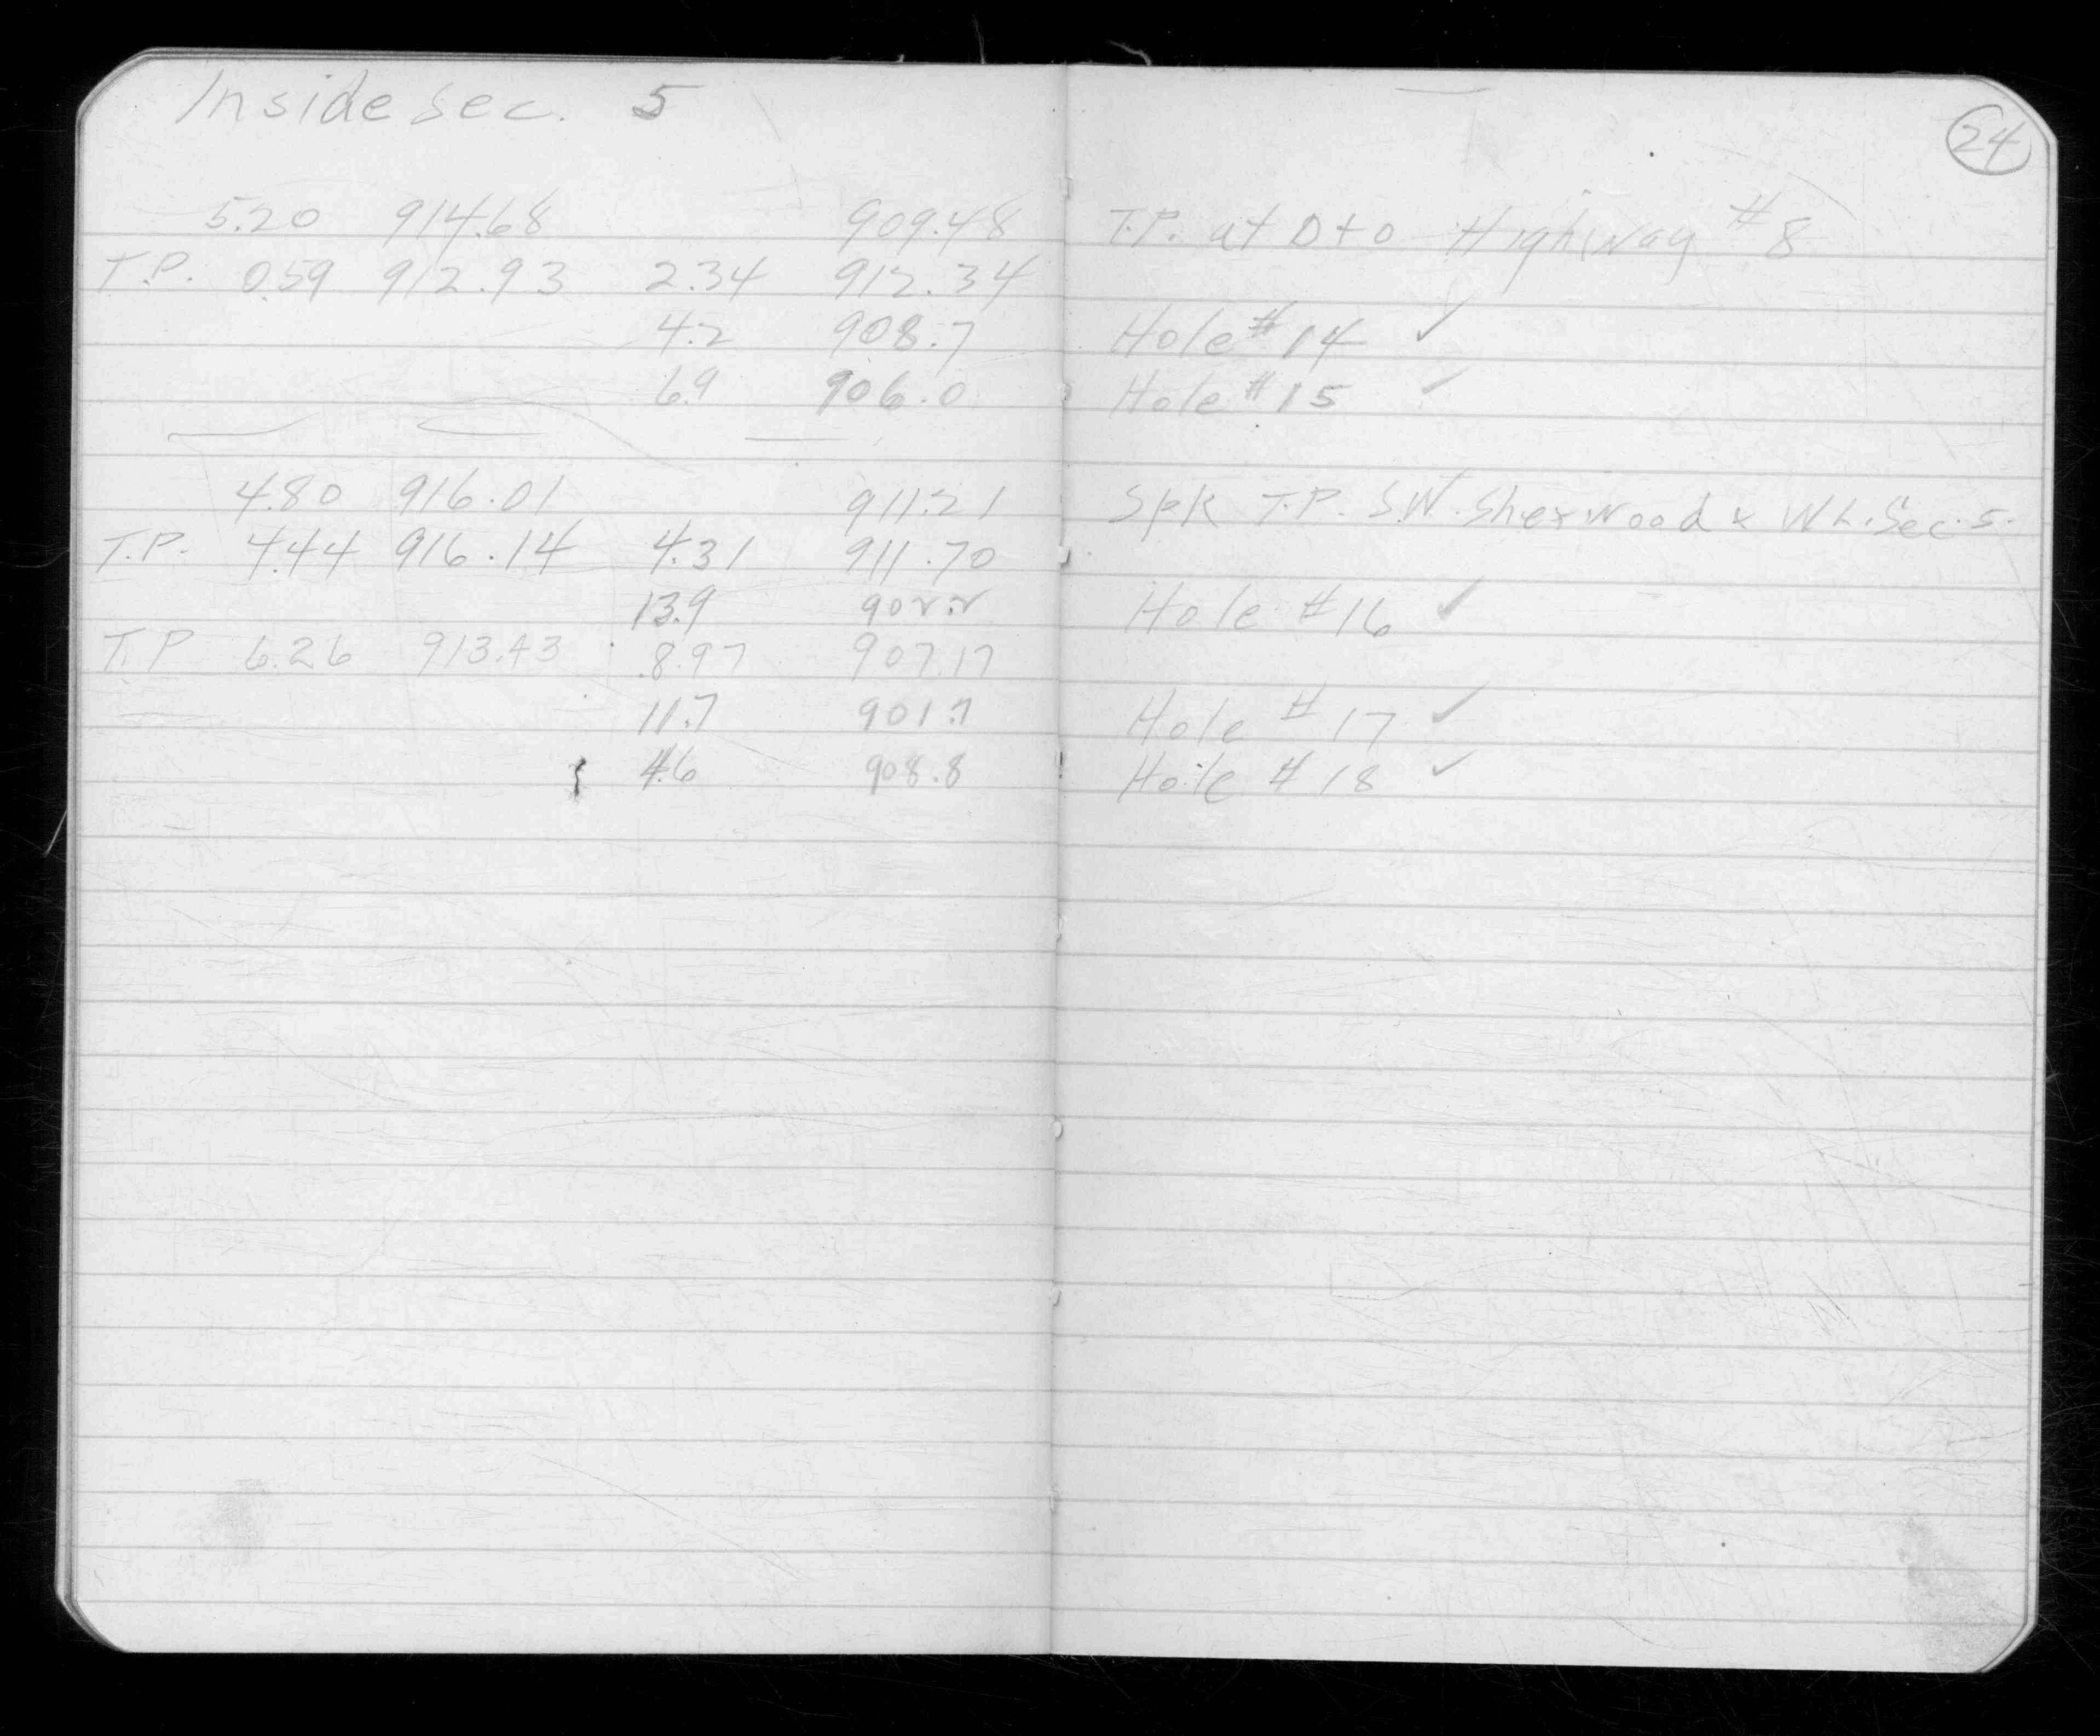 Inside Sec. 5
24
5.20 914.68 909.48 T.P. at 0+0 Highway #8
T.P. 0.59 912.93 2.34 912.34
4.2 908.7 Hole #14 ✓
6.9 906.0 Hole #15 ✓
4.80 916.01 911.21 Spk T.P. S.W. Sherwood & W L. Sec. 5.
T.P. 4.44 916.14 4.31 911.70
13.9 902.2 Hole #16 ✓
T.P 6.26 913.43 8.97 907.17
11.7 901.7 Hole #17 ✓
4.6 908.8 Hole #18 ✓